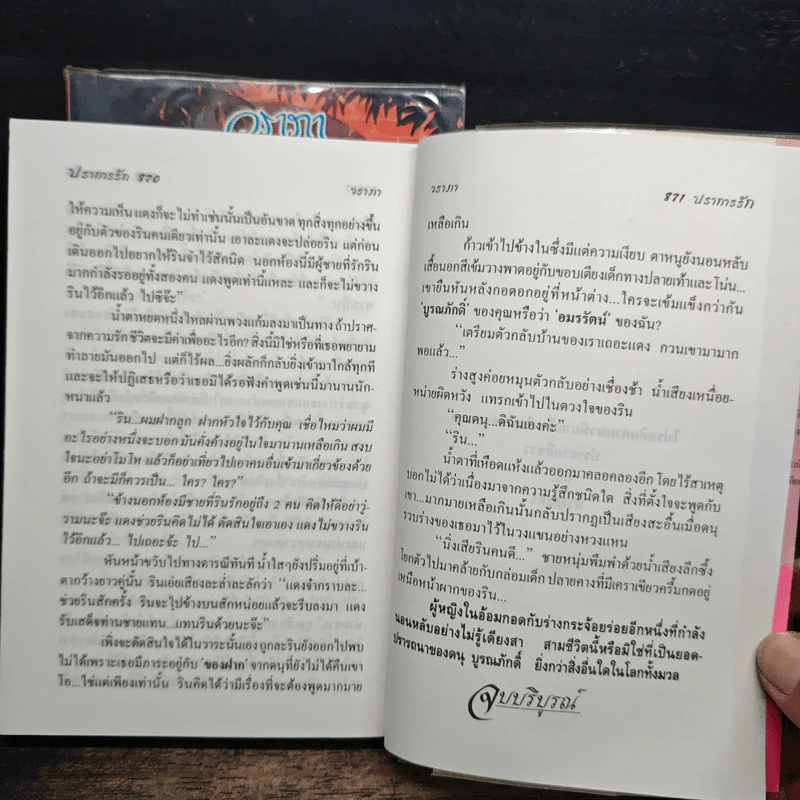 วราภา
ปราการรัก 870
วราภา
ให้ความเห็น แดงก็จะไม่ทำเช่นนั้นเป็นอันขาด ทุกสิ่งทุกอย่างขึ้น
อยู่กับตัวของรินคนเดียวเท่านั้น เอาละแดงจะปล่อยริน แต่ก่อน
เดินออกไปอยากให้รินจำไว้สักนิด นอกห้องนี้มีผู้ชายที่รักริน
มากกำลังรออยู่ทั้งสองคน แดงพูดเท่านี้แหละ และก็จะไม่ขวาง
รินไว้อีกแล้ว ไปซีจ๊ะ”
น้ำตาหยดหนึ่งไหลผ่านพวงแก้มลงมาเป็นทาง ถ้าปราศ-
จากความรักชีวิตจะมีค่าเพื่ออะไรอีก? สิ่งนี้มิใช่หรือที่เธอพยายาม
ทำลายมันออกไป แต่ก็ไร้ผล...ยิ่งผลักก็กลับยิ่งเข้ามาใกล้ทุกที
และจะให้ปฏิเสธหรือว่าเธอมิได้รอฟังคำพูดเช่นนี้มานานนัก-
หนาแล้ว
“ริน...ผมฝากลูก ฝากหัวใจไว้กับคุณ เชื่อไหมว่าผมมี
อะไรอย่างหนึ่งจะบอก มันคั่งค้างอยู่ในใจมานานเหลือเกิน สงบ
ใจนะอย่าโมโห แล้วก็อย่าเที่ยวไปเอาคนอื่นเข้ามาเกี่ยวข้องด้วย
อีก ถ้าจะมีก็ควรเป็น... ใคร? ใคร?”
“ข้างนอกห้องมีชายที่รินรักอยู่ถึง 2 คน คิดให้ดีอย่าวู่-
วามนะจ๊ะ แดงช่วยรินคิดไม่ได้ ตัดสินใจเอาเอง แดงไม่ขวางริน
ไว้อีกแล้ว... ไปเถอะจ้ะ ไป...”
หันหน้าขวับไปทางดารณีทันที น้ำใสๆยังปริ่มอยู่ที่เบ้า-
ตากว้างยาวคู่นั้น รินเอ่ยเสียงละล่ำละลักว่า “แดงจ๋ากราบละ...
ช่วยรินสักครั้ง รินจะไปข้างบนสักหน่อยแล้วจะรีบลงมา แดง
รับเสด็จท่านชายแทน...แทนรินด้วยนะจ๊ะ”
เพิ่งจะตัดสินใจได้ในวาระนั้นเอง ถูกละรินยังออกไปพบ
ไม่ได้เพราะเธอมีภาระอยู่กับ ‘ของฝาก’ จากดนุที่ยังไม่ได้คืนเขา
โอ...ใช่แต่เพียงเท่านั้น รินคิดได้ว่ามีเรื่องที่จะต้องพูดมากมาย
วราภา
871 ปราการรัก
เหลือเกิน
ก้าวเข้าไปข้างในซึ่งมีแต่ความเงียบ ตาหนูยังนอนหลับ
เสื้อนอกสีเข้มวางพาดอยู่กับขอบเตียงเด็กทางปลายเท้าและโน่น...
เขายืนหันหลังกอดอกอยู่ที่หน้าต่าง...ใครจะเข้มแข็งกว่ากัน
‘บูรณภักดิ์’ ของคุณหรือว่า ‘อมรรัตน์’ ของฉัน?
“เตรียมตัวกลับบ้านของเราเถอะแดง กวนเขามามาก
พอแล้ว...”
ร่างสูงค่อยหมุนตัวกลับอย่างเชื่องช้า น้ำเสียงเหนื่อย-
หน่ายผิดหวัง แทรกเข้าไปในดวงใจของริน
“คุณดนุ...ดิฉันเองค่ะ”
“ริน...”
น้ำตาที่เหือดแห้งแล้วออกมาคลอคลองอีก โดยไร้สาเหตุ
บอกไม่ได้ว่าเนื่องมาจากความรู้สึกชนิดใด สิ่งที่ตั้งใจจะพูดกับ
เขา...มากมายเหลือเกินนั้นกลับปรากฏเป็นเสียงสะอื้นเมื่อดนุ
รวบร่างของเธอมาไว้ในวงแขนอย่างหวงแหน
“นิ่งเสียรินคนดี...” ชายหนุ่มพึมพำด้วยน้ำเสียงลึกซึ้ง
โยกตัวไปมาคล้ายกับกล่อมเด็ก ปลายคางที่มีเคราเขียวครึ้มกดอยู่
เหนือหน้าผากของริน...
ผู้หญิงในอ้อมกอดกับร่างกระจ้อยร่อยอีกหนึ่งที่กำลัง
นอนหลับอย่างไม่รู้เดียงสา สามชีวิตนี้หรือมิใช่ที่เป็นยอด-
ปรารถนาของดนุ บูรณภักดิ์ ยิ่งกว่าสิ่งอื่นใดในโลกทั้งมวล
จบบริบูรณ์